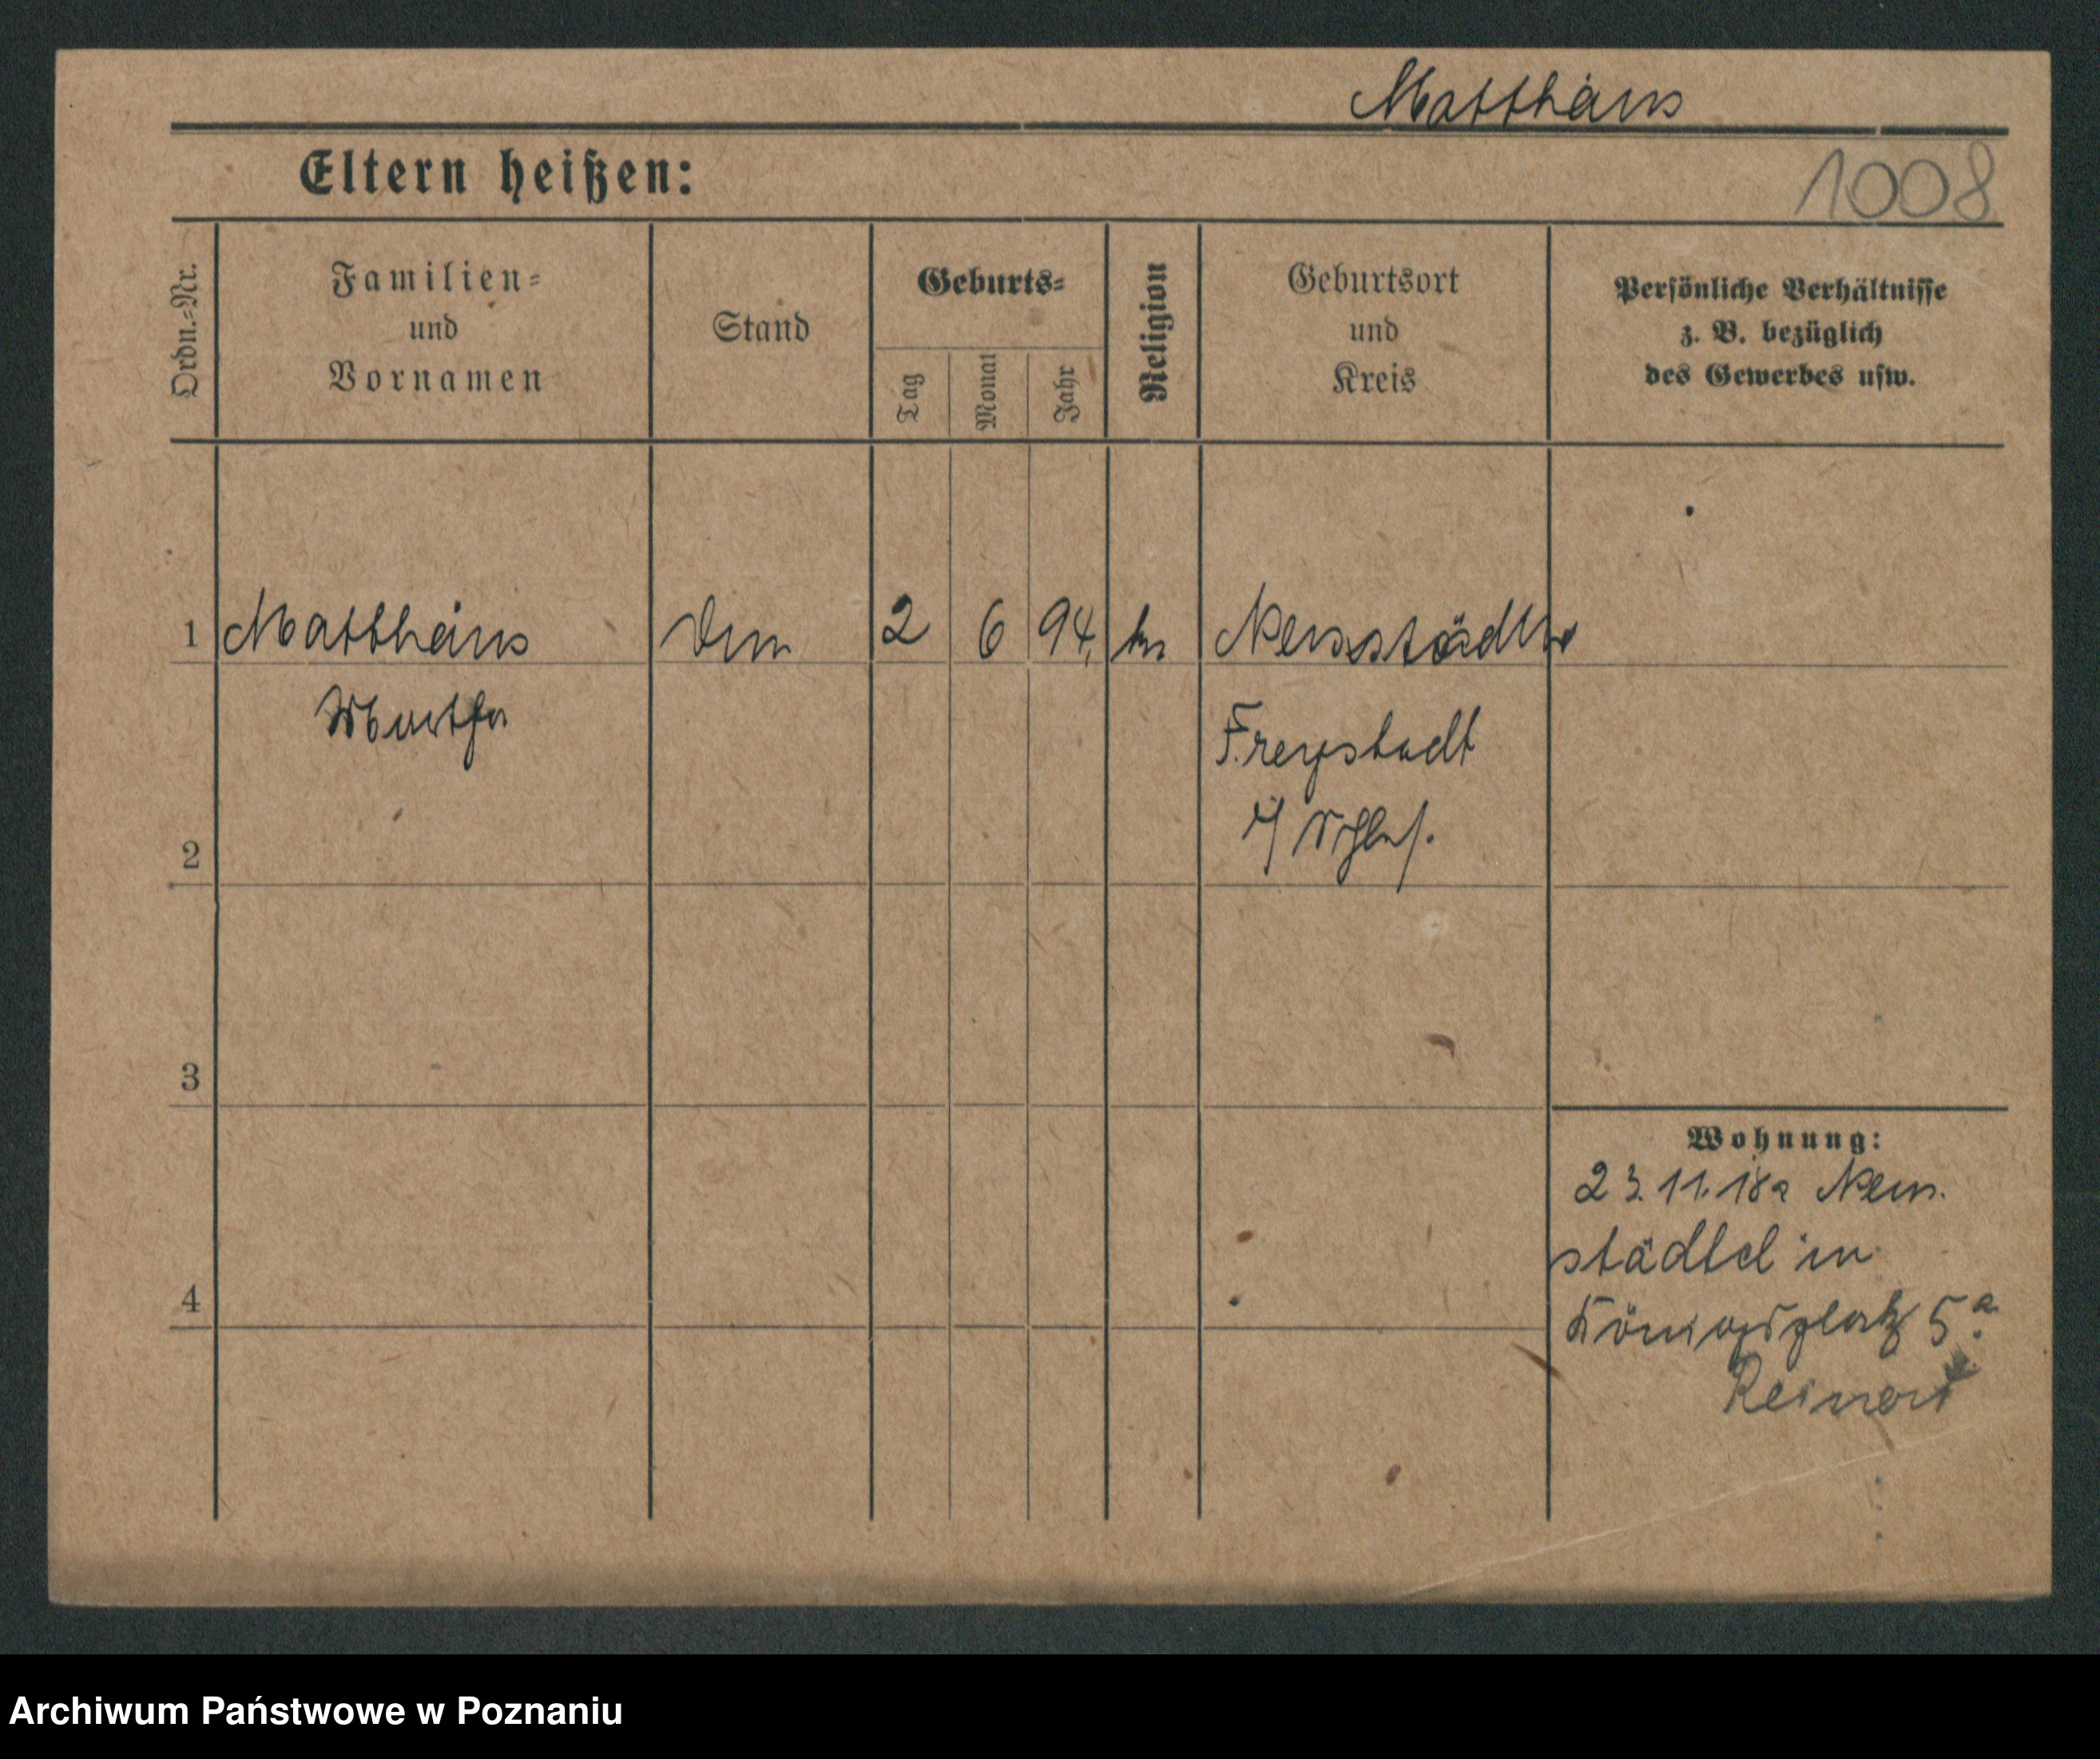 Matthäus
Eltern heißen:
1008
Ordn.-Nr.
Familien-
und
Vornamen
Stand
Geburts-
Tag
Monat
Jahr
Religion
Geburtsort
und
Kreis
Persönliche Verhältnisse
z. B. bezüglich
des Gewerbes usw.
1 Matthäus 2 6 94. Neusstädtel
Martha
Freystadt
i/ Schles.
2
3
4
Wohnung:
23.11.18 a Neu
städtel in
Königsplatz 5a.
Reinert
Archiwum Państwowe w Poznaniu